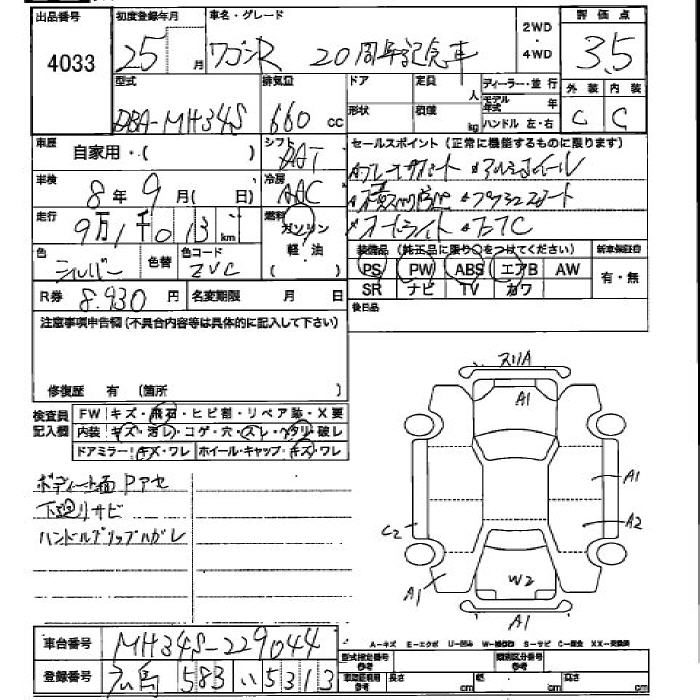 出品番号
4033
初度登録年月
25 月
車名・グレード
ワゴンR 20周年記念車
2WD
4WD
評価点
3.5
型式
DBA-MH34S
排気量
660 cc
ドア
定員
人
形状
積載
kg
ディーラー・並行
モデル年式
年
ハンドル 左・右
外装
内装
C
C
車歴
自家用・( )
シフト
AT
セールスポイント(正常に機能するものに限ります)
車検
8年9月( 日)
冷房
AAC
走行
9万1千013km
燃料
ガソリン
軽油
オートライト
ETC
色
シルバー
色替
色コード
ZVC
装備品(純正品に限り〇をつけてください)
新車保証書
PS PW ABS エアB AW
SR ナビ TV カワ
有・無
R券 8.930円
名変期限 月 日
後日品
注意事項申告欄(不具合内容等は具体的に記入して下さい)
修復歴 有 (箇所 )
検査員記入欄
FW キズ・飛石・ヒビ割・リペア跡・X要
内装 キズ・汚レ・コゲ・穴・スレ・ヘタリ・破レ
ドアミラー キズ・ワレ ホイール・キャップ キズ・ワレ
下廻りサビ
ハンドルグリップハガレ
スリA
A1
A1
A2
C2
W2
A1
A1
車台番号
MH34S-229044
A-キズ E-エクボ U-凹み S-サビ C-腐食 XX-交換済
登録番号
広島 583 い 5313
型式指定番号
参考
類別区分番号
参考
参考
長さ cm
幅 cm
高さ cm